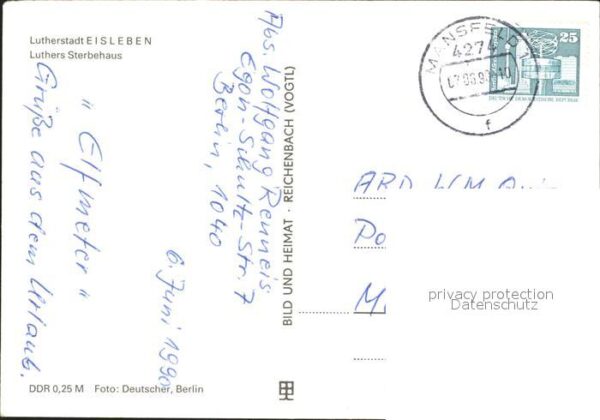 Lutherstadt EISLEBEN
Luthers Sterbehaus
Grüße aus dem Urlaub.
"Elfmeter"
6. Juni 1990
Abs. Wolfgang Renneis
Egon-Schultz-Str. 7
Berlin, 1040
DDR 0,25 M Foto: Deutscher, Berlin
BILD UND HEIMAT · REICHENBACH (VOGTL)
MANSFELD 1
4274
f
25
DEUTSCHE DEMOKRATISCHE REPUBLIK
ARD WM
Po
M
privacy protection
Datenschutz